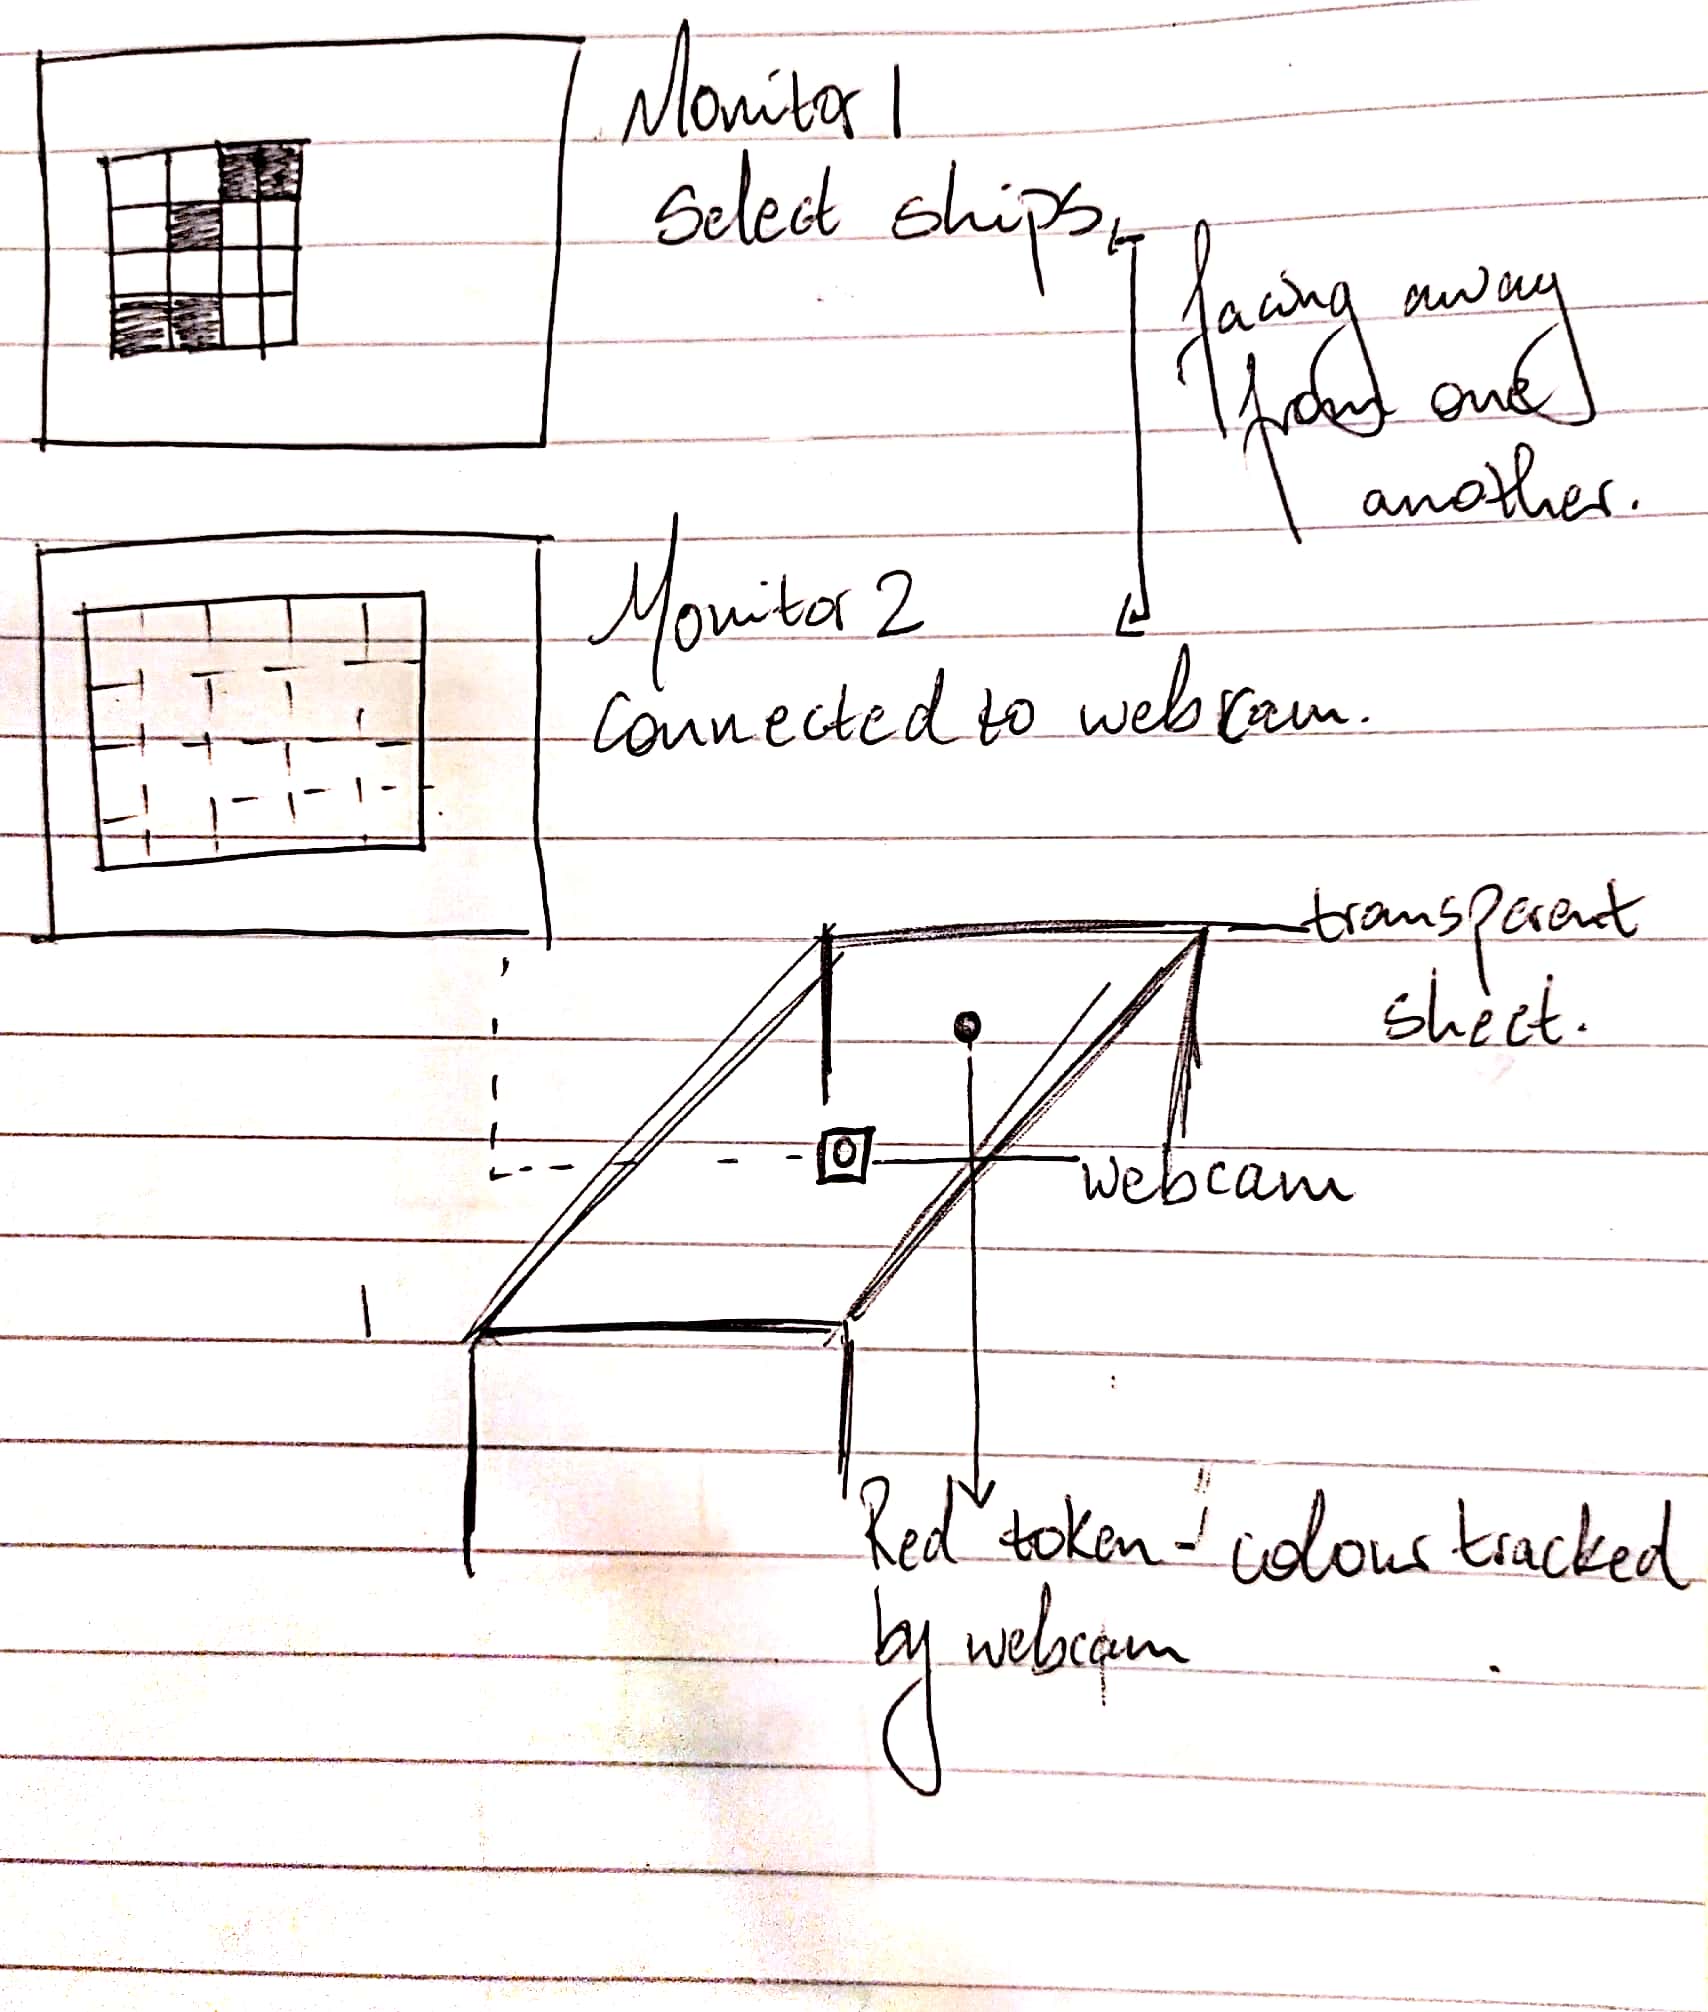 Monitor 1
Select ships.
facing away
from one
another.
Monitor 2
connected to webcam.
transparent
sheet.
webcam
Red token - colour tracked
by webcam